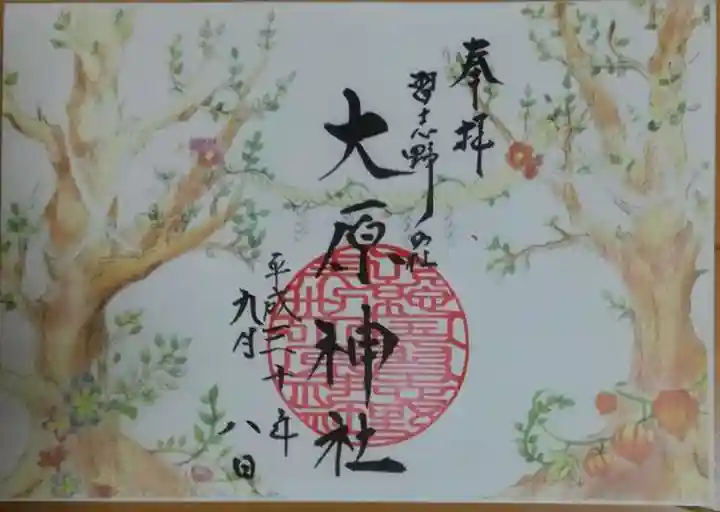 奉拝
習志野の杜
大原神社
平成三十年
九月八日